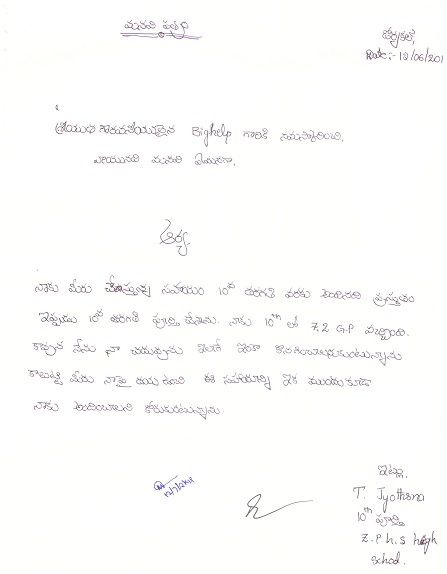 మనవి పత్రం
Date:- 12/06/201
శ్రీయుత గౌరవనీయులైన Bighelp గారికి నమస్కరించి,
వ్రాయునది మనవి ఏమనగా,
ఆర్య
నాకు మీరు చేస్తున్న సహాయం 10వ తరగతి వరకు అందినది ప్రస్తుతం
ఇప్పుడు 10వ తరగతి పూర్తి చేశాను. నాకు 10th లో 7.2 G.P వచ్చింది.
కావున నేను నా చదువును ఇలాగే ఇంకా కొనసాగించాలనుకుంటున్నాను.
కాబట్టి మీరు నాపై దయ ఉంచి ఈ సహాయాన్ని ఇక ముందు కూడా
నాకు అందించాలని కోరుకుంటున్నాను.
ఇట్లు,
T. Jyothsna
10th పూర్తి
Z.P.h.s high
school.